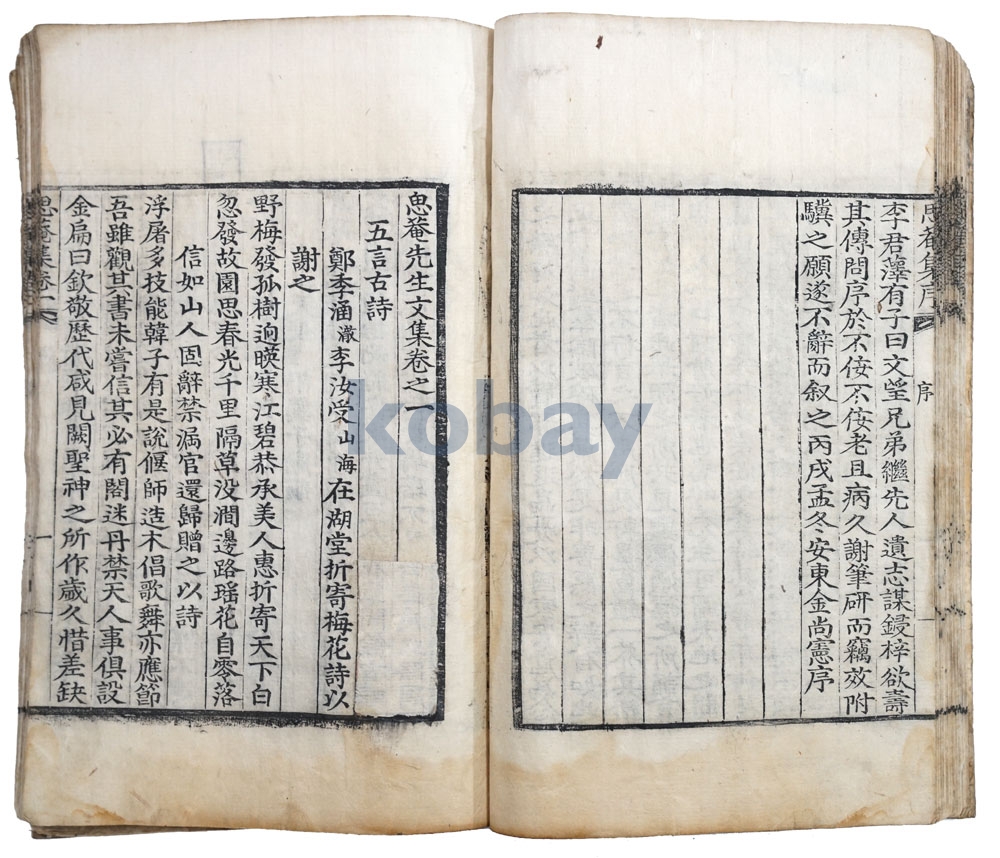 思菴集序
序
一
李君藫有子曰文望兄弟繼先人遺志謀鋟梓欲壽
其傳問序於不侫不侫老且病久謝筆研而竊效附
驥之願遂不辭而叙之丙戌孟冬安東金尚憲序
思菴先生文集卷之一
五言古詩
鄭季涵澈李汝受山海在湖堂折寄梅花詩以
謝之
野梅發孤樹逈暎寒江碧恭承美人惠折寄天下白
忽發故園思春光千里隔草没澗邊路瑶花自零落
信如山人固辭禁漏官還歸贈之以詩
浮屠多技能韓子有是說偃師造木倡歌舞亦應節
吾雖觀其書未嘗信其必有閣迷丹禁天人事俱設
金扁曰欽敬歷代咸見闕聖神之所作歲久惜差缺
思菴集卷一
kobay